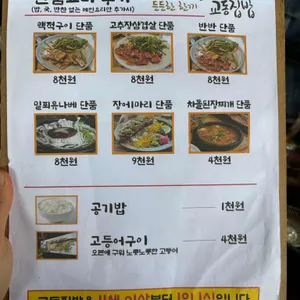 (밥, 국, 반찬 없는 메인요리만 추가시)
든든한 한끼
고등집밥
맥적구이 단품
고추장삼겹살 단품
반반 단품
8천원
8천원
8천원
밀푀유나베 단품
장어머리 단품
차돌된장찌개 단품
8천원
9천원
4천원
공기밥
1천원
고등어구이
4천원
오븐에 구워 노릇노릇한 고등어